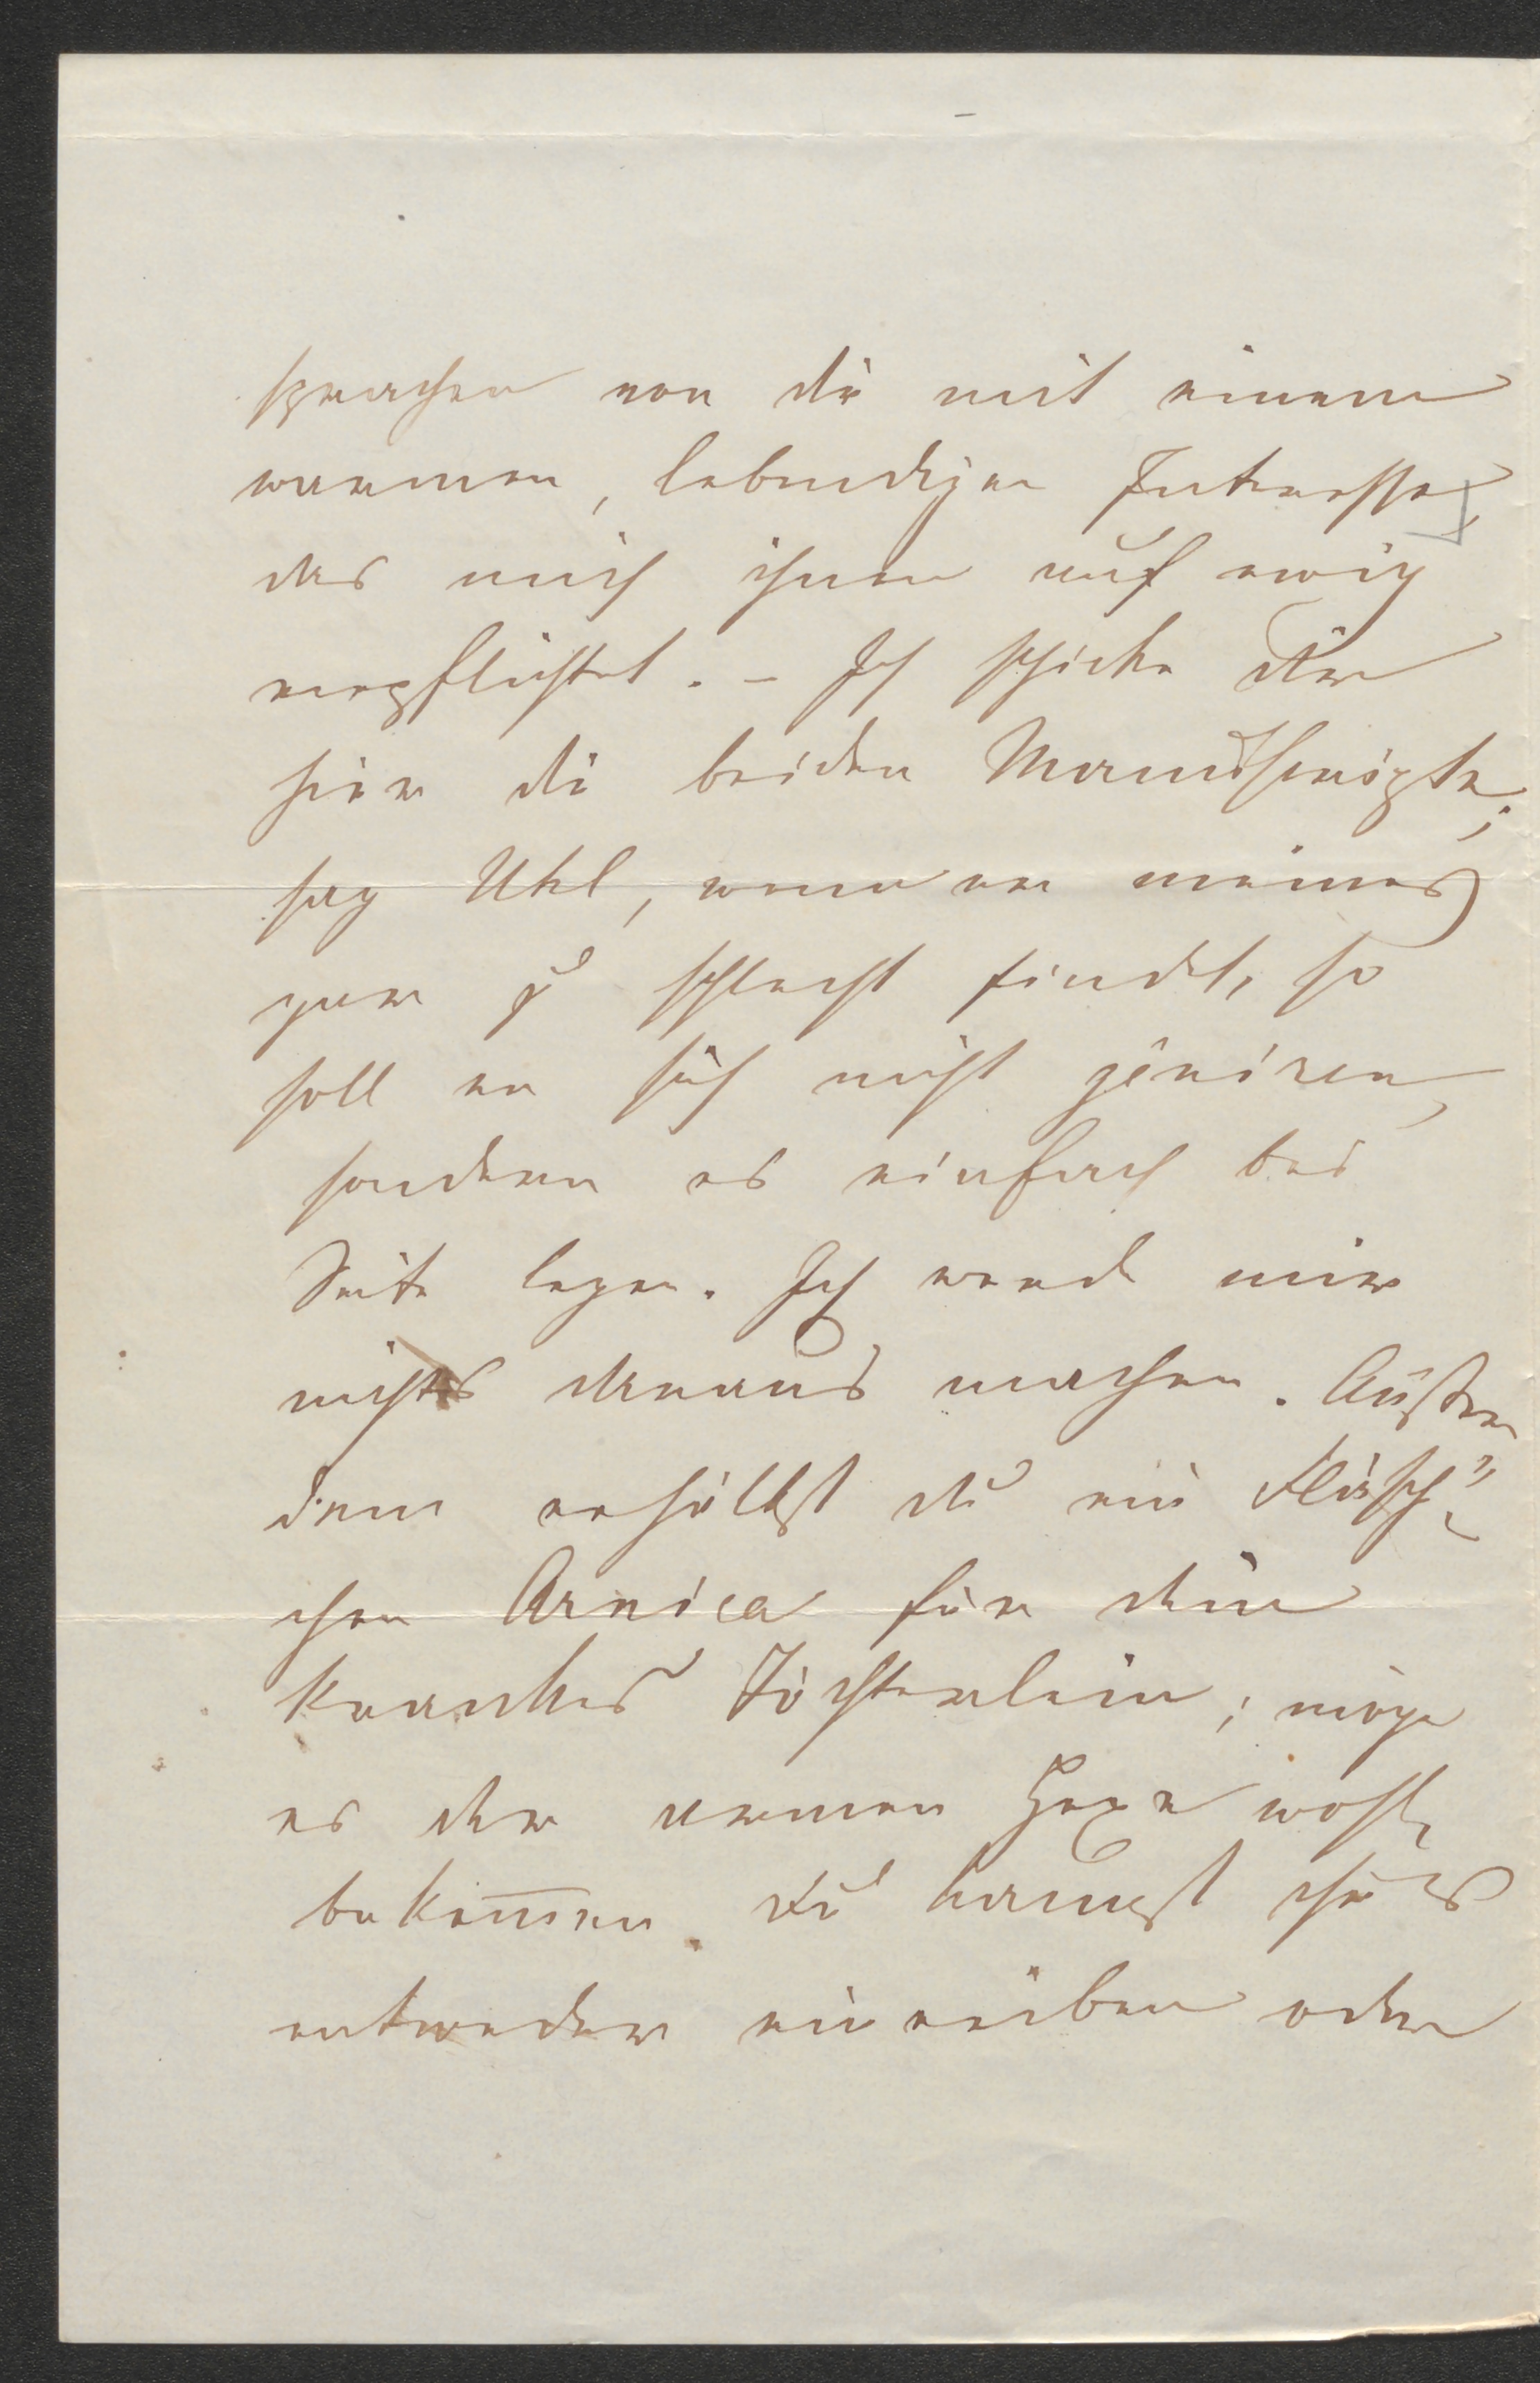 sprachen von dir mit einem
warmen, lebendigen Interesse,
das mich ihnen auf ewig
verpflichtet. – Ich schicke dir
hier die beiden Manuskripte;
sag Uhl, wenn er meines
gar zu schlecht findet, so
soll er sich nicht géniren,
sondern es einfach bei
Seite legen. Ich werde mir
nichts daraus machen. Außer
dem erhältst du ein Fläsch=
chen Arnica für dein
krankes Töchterlein; möge
es der armen Hexe wohl
bekom̅en. Du kannst ihrs
entweder einreiben oder